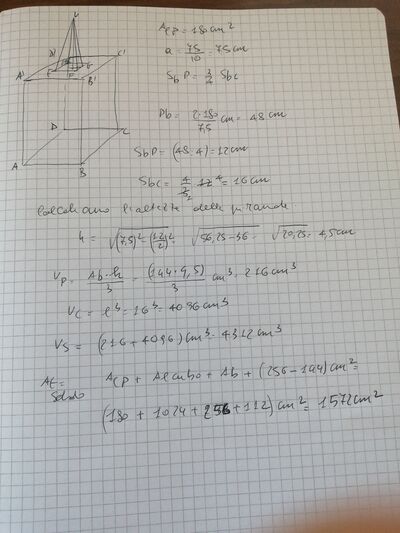 V
D' C'
E G
F
A' B'
D C
A B
Aℓp = 180 cm²
a = 75/10 = 7,5 cm
SbP = 3/4 Sbc
Pb = 2·180/7,5 cm = 48 cm
SbP = (48:4) = 12 cm
Sbc = 4/3 12 4 = 16 cm
Calcoliamo l'altezza della piramide
h = √(7,5)² - (12/2)² = √56,25 - 36 = √20,25 = 4,5 cm
Vp = Ab·h/3 = (144·4,5)/3 cm³ = 216 cm³
Vc = ℓ³ = 16³ = 4096 cm³
Vs = (216 + 4096) cm³ = 4312 cm³
At = Aℓp + Aℓcubo + Ab + (256 - 144) cm² =
Solido
(180 + 1024 + 256 + 112) cm² = 1572 cm²